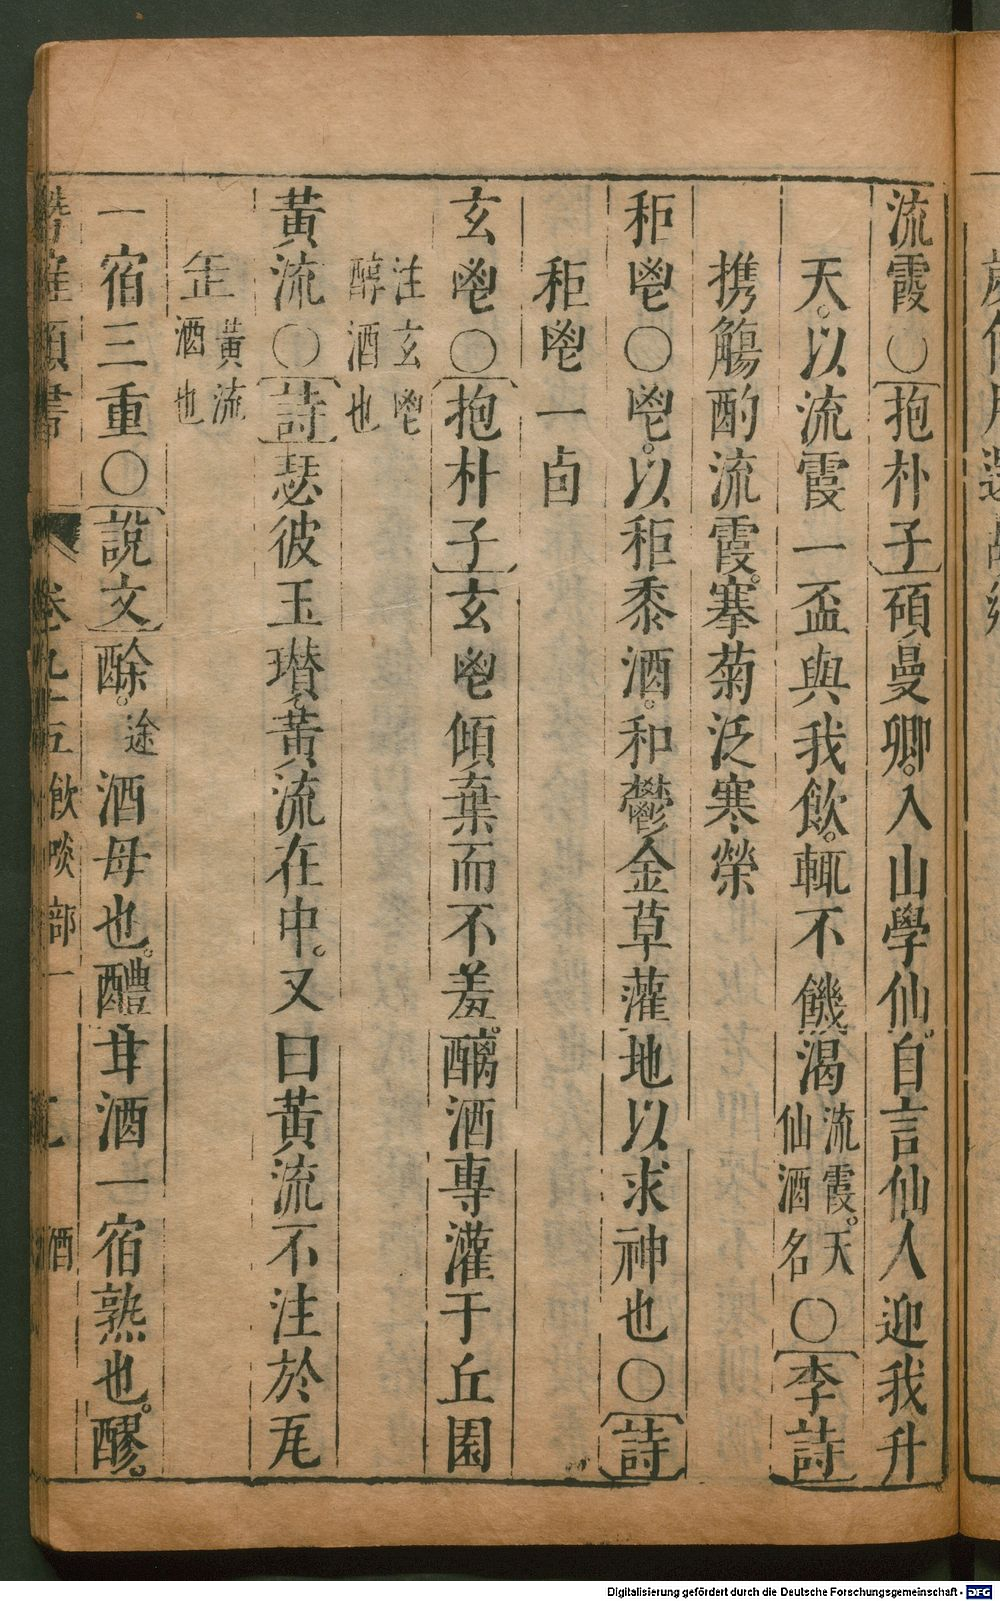 流霞○抱朴子碩曼卿。入山學仙。自言仙人迎我升
天。以流霞一盃與我飲。輒不饑渴流霞。天仙酒名○李詩
携觴酌流霞。搴菊泛寒榮
秬鬯○鬯。以秬黍酒。和鬱金草灌地以求神也○詩
秬鬯一卣
玄鬯○抱朴子玄鬯傾棄而不羞。醨酒專灌于丘園
注玄鬯醇酒也
黃流○詩瑟彼玉瓚。黃流在中。又曰黃流不注於瓦
缶黃流酒也
一宿三重○說文酴。途酒母也。醴甘酒一宿熟也。醪。
卷九十五飲啖部一 酒
Digitalisierung gefördert durch die Deutsche Forschungsgemeinschaft - DFG